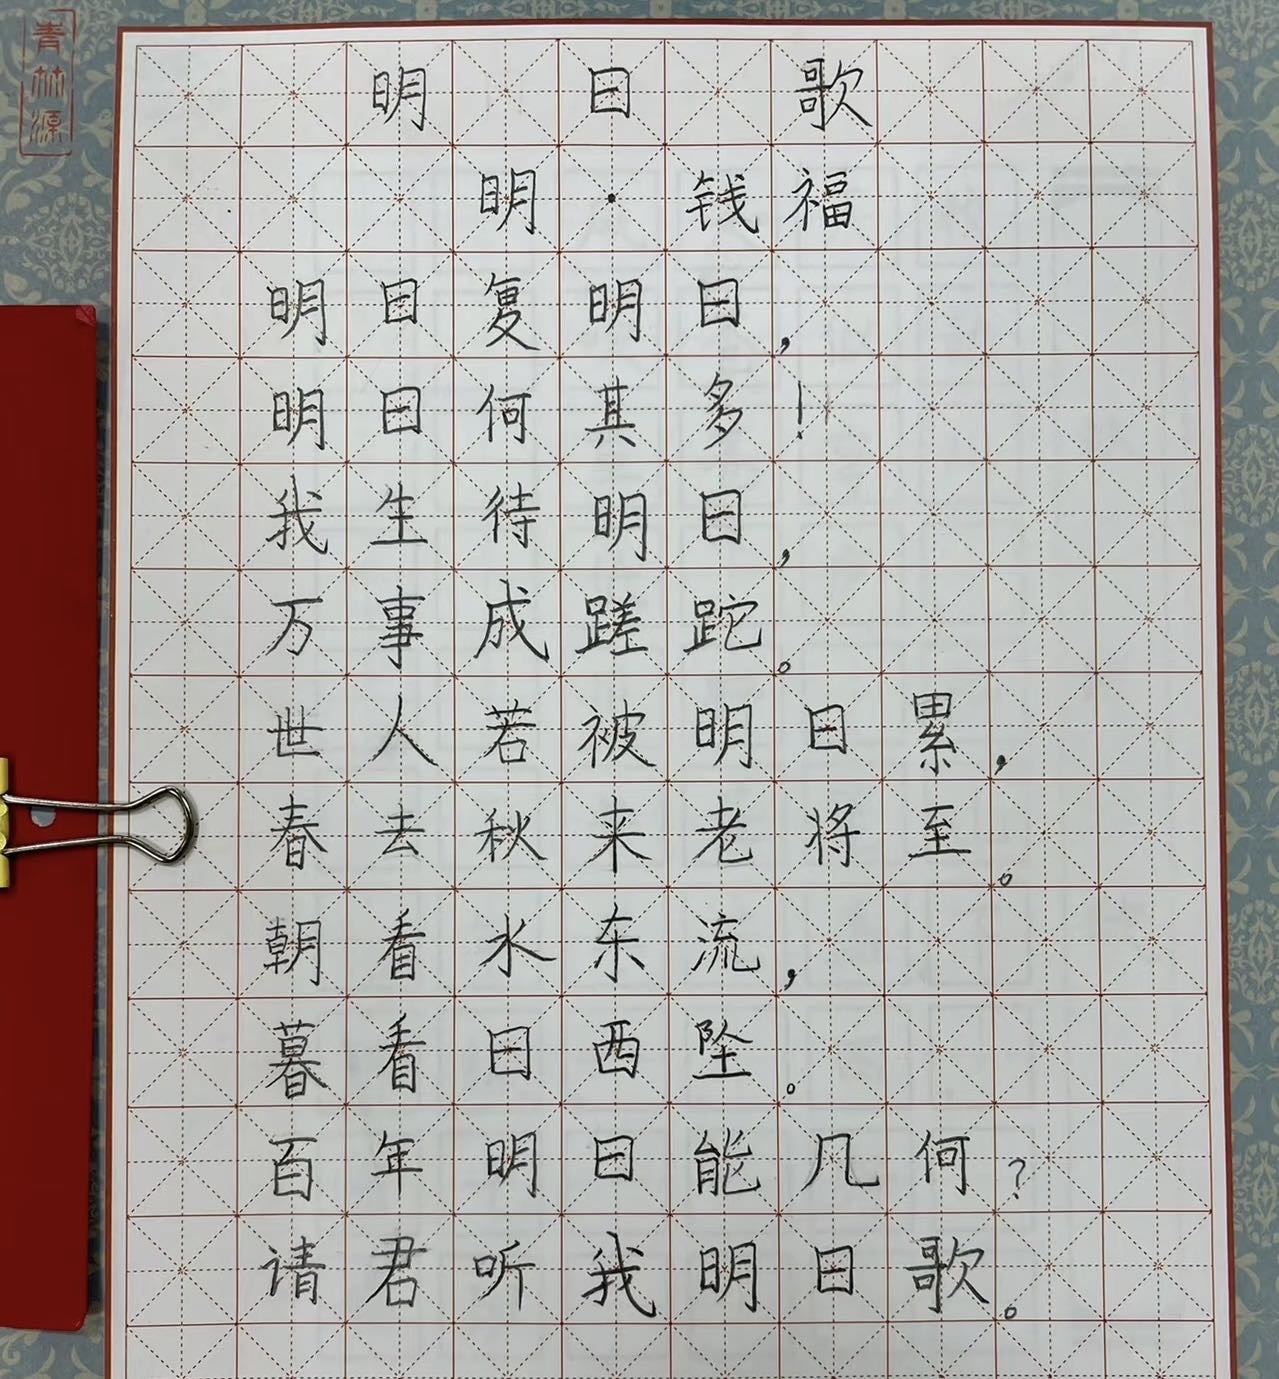 青林源
明日歌
明·钱福
明日复明日，
明日何其多！
我生待明日，
万事成蹉跎。
世人若被明日累，
春去秋来老将至。
朝看水东流，
暮看日西坠。
百年明日能几何？
请君听我明日歌。